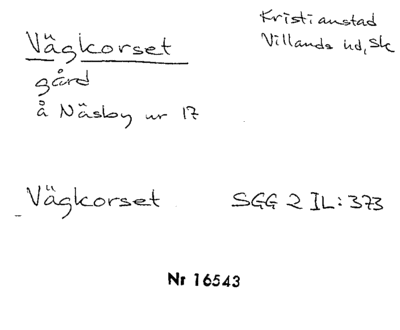 Vägkorset
gård
å Näsby nr 17
Kristianstad
Villands hd, Sk
Vägkorset SGG 2 IL: 373
Nr 16543